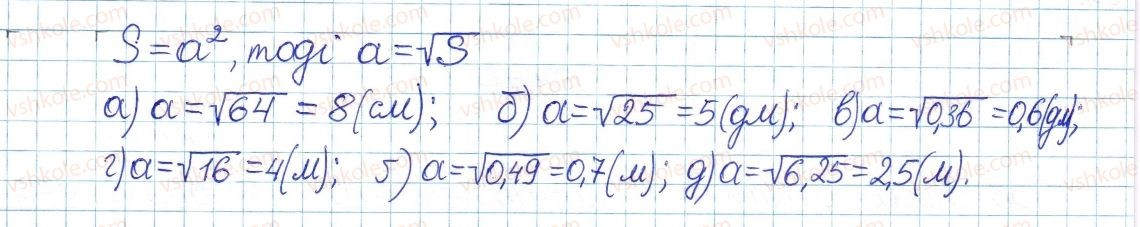 S = a², тоді a = √S
а) a = √64 = 8 (см); б) a = √25 = 5 (дм); в) a = √0,36 = 0,6 (дм);
г) a = √16 = 4 (м); ґ) a = √0,49 = 0,7 (м); д) a = √6,25 = 2,5 (м).